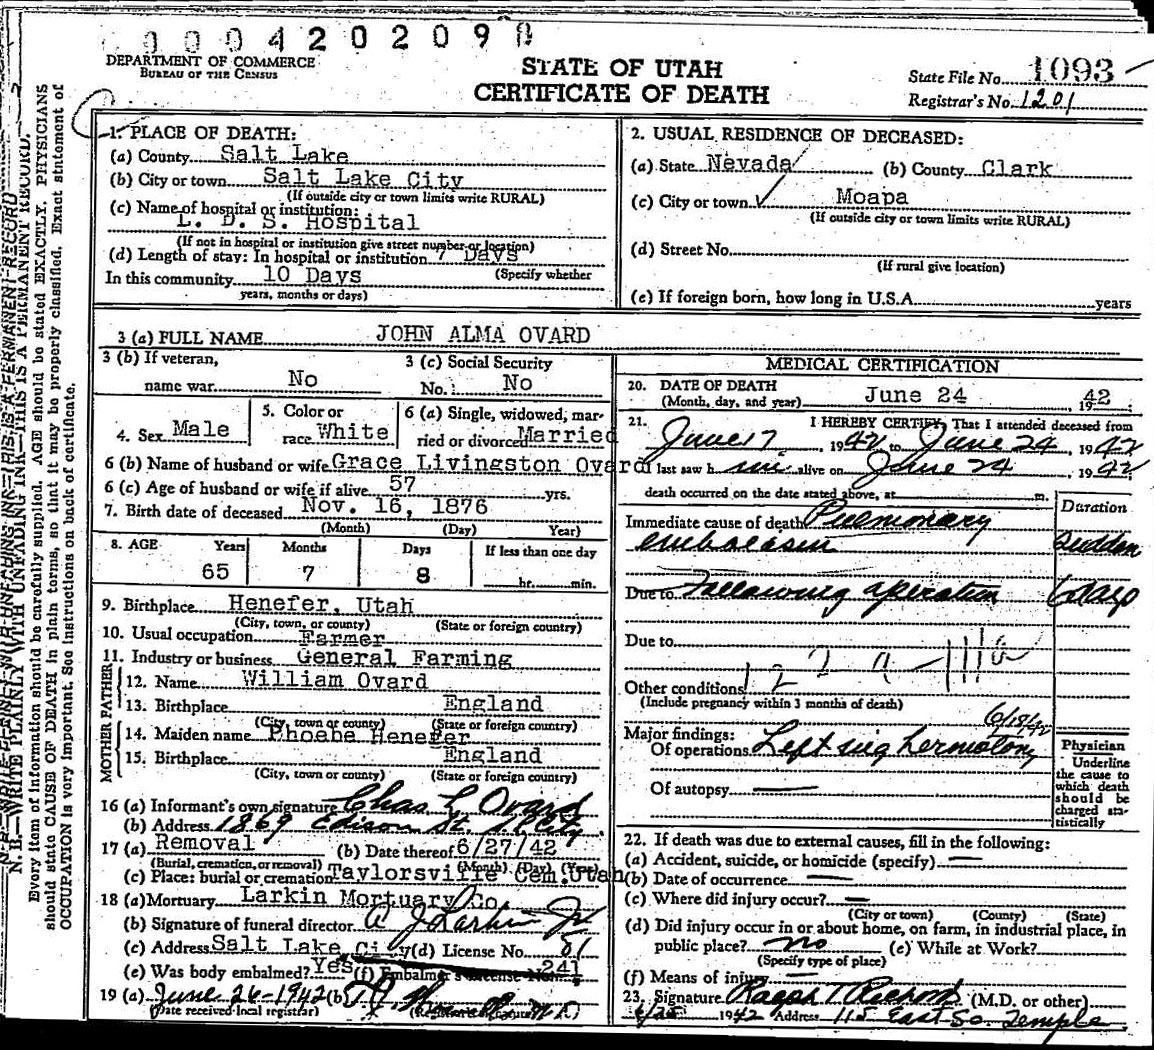 0004202098
DEPARTMENT OF COMMERCE
BUREAU OF THE CENSUS
STATE OF UTAH
CERTIFICATE OF DEATH
State File No. 1093
Registrar's No. 1201
N. B.—WRITE PLAINLY WITH UNFADING INK—THIS IS A PERMANENT RECORD.
Every item of information should be carefully supplied. AGE should be stated EXACTLY. PHYSICIANS
should state CAUSE OF DEATH in plain terms, so that it may be properly classified. Exact statement of
OCCUPATION is very important. See instructions on back of certificate.
1. PLACE OF DEATH:
(a) County Salt Lake
(b) City or town Salt Lake City
(If outside city or town limits write RURAL)
(c) Name of hospital or institution:
L. D. S. Hospital
(If not in hospital or institution give street number or location)
(d) Length of stay: In hospital or institution 7 Days
(Specify whether
In this community 10 Days
years, months or days)
2. USUAL RESIDENCE OF DECEASED:
(a) State Nevada (b) County Clark
(c) City or town Moapa
(If outside city or town limits write RURAL)
(d) Street No.
(If rural give location)
(e) If foreign born, how long in U.S.A. years
3 (a) FULL NAME JOHN ALMA OVARD
3 (b) If veteran,
name war No
3 (c) Social Security
No. No
4. Sex Male
5. Color or
race White
6 (a) Single, widowed, mar-
ried or divorced Married
6 (b) Name of husband or wife Grace Livingston Ovard
6 (c) Age of husband or wife if alive 57 yrs.
7. Birth date of deceased Nov. 16, 1876
(Month) (Day) Year)
8. AGE Years Months Days If less than one day
65 7 8 hr. min.
9. Birthplace Henefer, Utah
(City, town, or county) (State or foreign country)
10. Usual occupation Farmer
11. Industry or business General Farming
FATHER
12. Name William Ovard
13. Birthplace England
(City, town or county) (State or foreign country)
MOTHER
14. Maiden name Phoebe Henefer
15. Birthplace England
(City, town or county) (State or foreign country)
16 (a) Informant's own signature Chas L Ovard
(b) Address 1869 Edison St. S.L. City.
17 (a) Removal (b) Date thereof 6/27/42
(Burial, cremation, or removal) (Month) (Day) (Year)
(c) Place: burial or cremation Taylorsville Cem. Utah
18 (a) Mortuary Larkin Mortuary Co.
(b) Signature of funeral director A J Larkin Jr
(c) Address Salt Lake City (d) License No. 81
(e) Was body embalmed? Yes (f) Embalmer's License No. 241
19 (a) June 26-1942 (b) M D
(Date received local registrar) (Registrar's signature)
MEDICAL CERTIFICATION
20. DATE OF DEATH
(Month, day, and year) June 24, 1942
21. I HEREBY CERTIFY, That I attended deceased from
June 17, 1942 to June 24, 1942
I last saw him alive on June 24 1942
death occurred on the date stated above, at m.
Duration
Immediate cause of death Pulmonary
embolism Sudden
Due to Following operation 6 days
Due to
122 a - 111a
Other conditions
(Include pregnancy within 3 months of death)
6/18/42
Major findings:
Of operations Left ing herniotomy
Of autopsy —
Physician
Underline
the cause to
which death
should be
charged sta-
tistically
22. If death was due to external causes, fill in the following:
(a) Accident, suicide, or homicide (specify) —
(b) Date of occurrence —
(c) Where did injury occur? —
(City or town) (County) (State)
(d) Did injury occur in or about home, on farm, in industrial place, in
public place? no (e) While at Work?
(Specify type of place)
(f) Means of injury —
23. Signature Ralph T Richards (M.D. or other)
6/25 1942 Address 115 East So. Temple